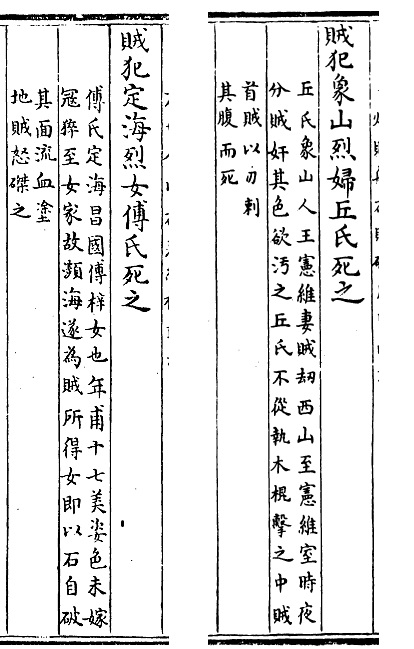 賊犯象山烈婦丘氏死之
丘氏象山人王憲維妻賊刧西山至憲維室時夜
分賊奸其色欲汚之丘氏不從執木棍擊之中賊
首賊以刃刺
其腹而死
賊犯定海烈女傅氏死之
傅氏定海昌國傅梓女也年甫十七美姿色未嫁
冦猝至女家故瀕海遂為賊所得女即以石自破
其面流血塗
地賊怒磔之